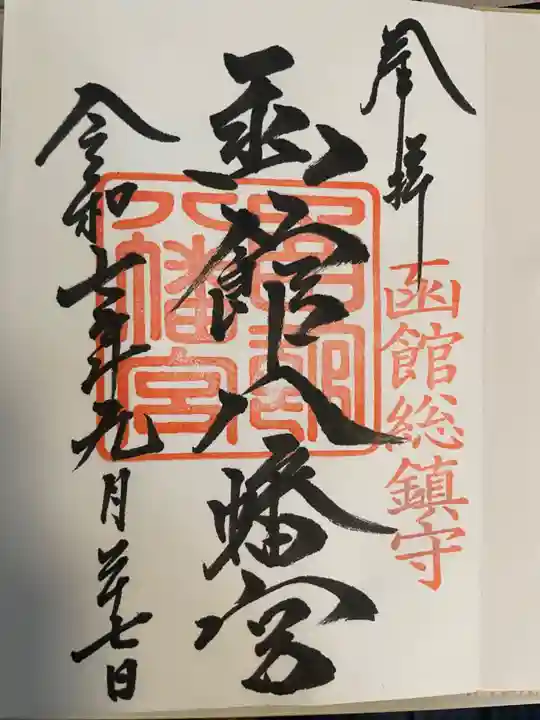 奉拝
函館総鎮守
函館八幡宮
八幡宮
令和七年九月廿七日